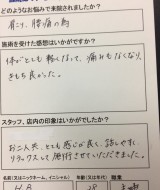 どのようなお悩みで来院されましたか？
肩こり、腰痛の為
施術を受けた感想はいかがですか？
体がとても軽くなって、痛みもなくなり、
きもち良かった。
スタッフ、店内の印象はいかがでしたか？
お二人共、とても感じが良く、話しやすく
リラックスして施術させていただきました。
H.B
28